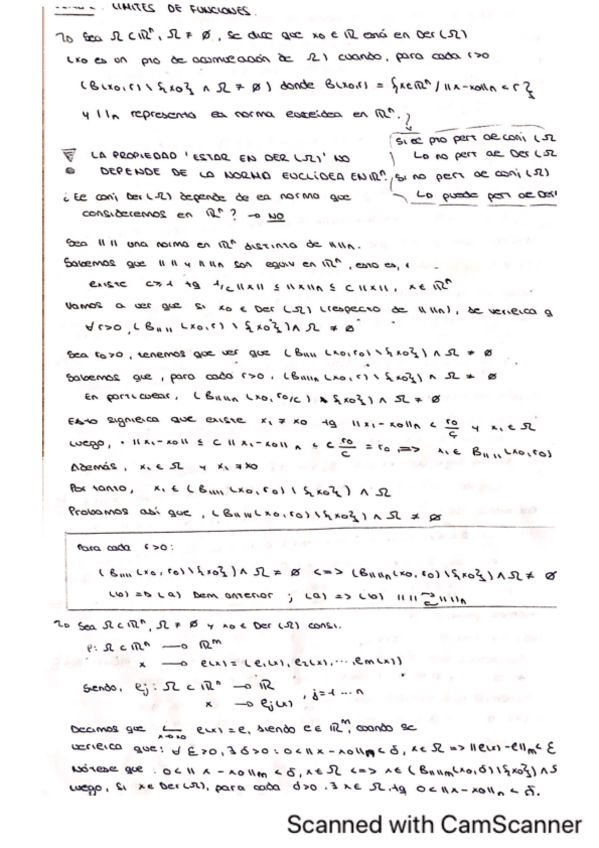 LIMITES DE FUNCIONES.
1) Sea Ω ⊂ ℝⁿ, Ω ≠ ∅, se dice que x₀ ∈ ℝ está en Der(Ω)
(x₀ es un pto de acumulación de Ω) cuando, para cada r>0
(B(x₀,r) \ {x₀} ∩ Ω ≠ ∅) donde B(x₀,r) = {x∈ℝⁿ / ||x-x₀||ₙ < r},
y ||ₙ representa la norma euclídea en ℝⁿ.
Si el pto pert al conj Ω
Lo no pert al Der(Ω
Si no pert al conj (Ω)
Lo puede pert al Der
LA PROPIEDAD 'ESTAR EN DER(Ω)' NO
DEPENDE DE LA NORMA EUCLÍDEA EN ℝⁿ.
¿El conj Der(Ω) depende de la norma que
consideremos en ℝⁿ? → NO
Sea || || una norma en ℝⁿ distinta de || ||ₙ.
Sabemos que || || y || ||ₙ son equiv en ℝⁿ, esto es,
existe c>1 tq 1/c ||x|| ≤ ||x||ₙ ≤ c ||x||, x ∈ ℝⁿ
Vamos a ver que si x₀ ∈ Der(Ω) (respecto de || ||ₙ), se verifica q
∀r>0, (B|| || (x₀,r) \ {x₀}) ∩ Ω ≠ ∅
Sea r₀>0, tenemos que ver que (B|| || (x₀,r₀) \ {x₀}) ∩ Ω ≠ ∅
Sabemos que, para cada r>0, (B|| ||ₙ (x₀,r) \ {x₀}) ∩ Ω ≠ ∅
En particular, (B|| ||ₙ (x₀, r₀/c) \ {x₀}) ∩ Ω ≠ ∅
Esto significa que existe x₁ ≠ x₀ tq ||x₁-x₀||ₙ < r₀/c y x₁ ∈ Ω
Luego, ||x₁-x₀|| ≤ c ||x₁-x₀||ₙ < c r₀/c = r₀ ⟹ x₁ ∈ B|| || (x₀,r₀)
Además, x₁ ∈ Ω y x₁ ≠ x₀
Por tanto, x₁ ∈ (B|| || (x₀,r₀) \ {x₀}) ∩ Ω
Probamos así que, (B|| || (x₀,r₀) \ {x₀}) ∩ Ω ≠ ∅
Para cada r>0:
(B|| || (x₀,r₀) \ {x₀}) ∩ Ω ≠ ∅ <=> (B|| ||ₙ (x₀,r₀) \ {x₀}) ∩ Ω ≠ ∅
(b) => (a) Dem anterior ; (a) => (b)
2) Sea Ω ⊂ ℝⁿ, Ω ≠ ∅ y x₀ ∈ Der(Ω) consi.
f: Ω ⊂ ℝⁿ → ℝᵐ
x → f(x) = (f₁(x), f₂(x), ..., fm(x))
Siendo, fj: Ω ⊂ ℝⁿ → ℝ
x → fj(x) , j=1 ... n
Decimos que L x→x₀ f(x) = l, siendo l ∈ ℝᵐ, cuando se
verifica que: ∀ ε>0, ∃ δ>0 : 0<||x-x₀||ₙ<δ, x∈Ω => ||f(x)-l||m< ε
Nótese que 0<||x-x₀||m<δ, x∈Ω <=> x∈(B|| ||m(x₀,δ)\{x₀})∩Ω
Luego, si x∈Der(Ω), para cada δ>0, ∃ x∈Ω, tq 0<||x-x₀||ₙ<δ.
Scanned with CamScanner